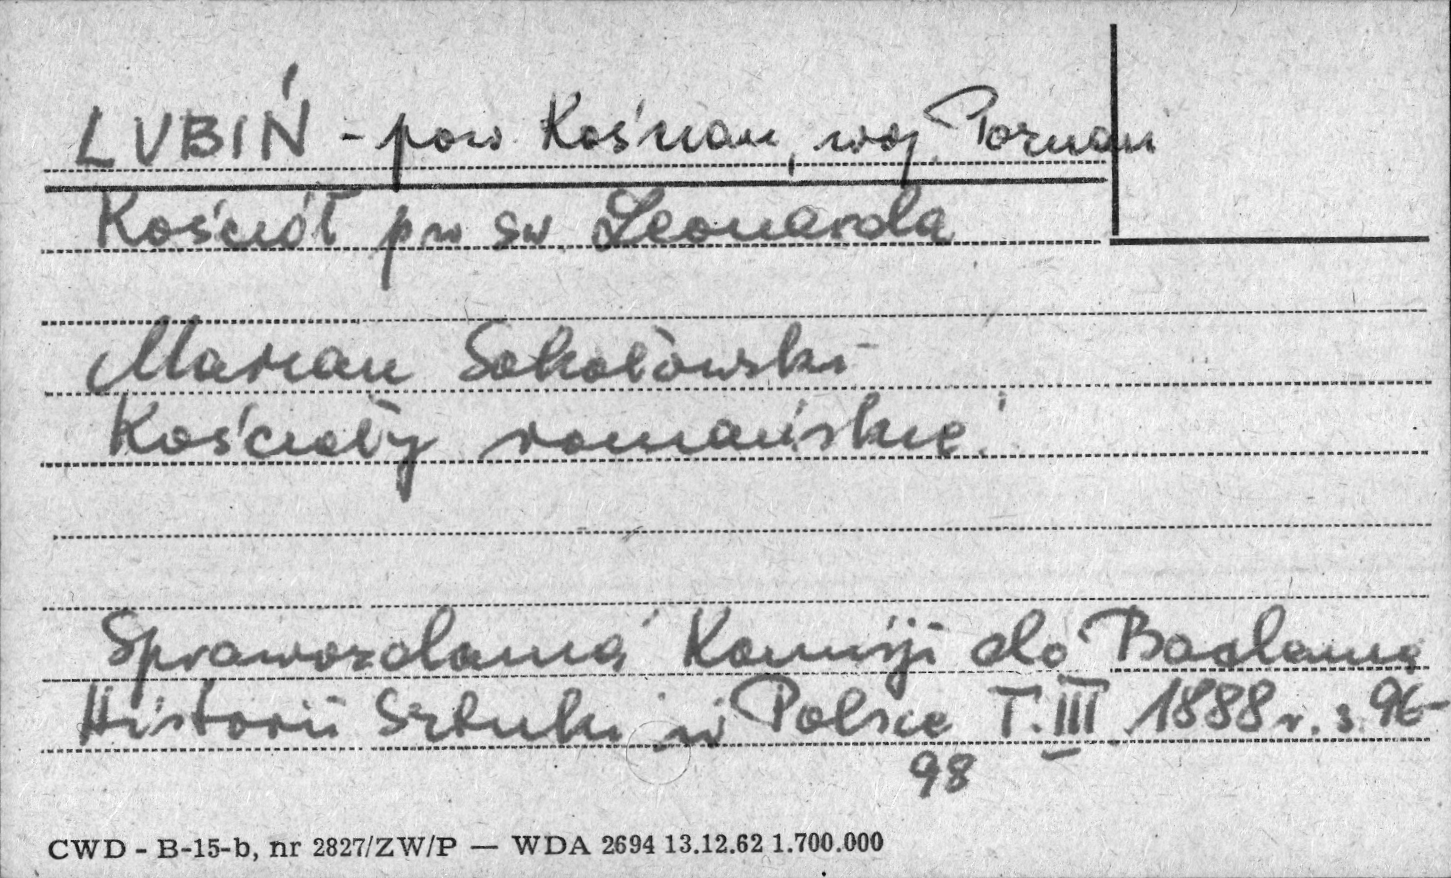 LUBIŃ - pow. Kościan, woj. Poznań
Kościół pw św. Leonarda
Marian Sokołowski
Kościoły romańskie
Sprawozdania Komisji do Badania
Historii Sztuki w Polsce T. III 1888 r. s. 96-
98
CWD - B-15-b, nr 2827/ZW/P — WDA 2694 13.12.62 1.700.000